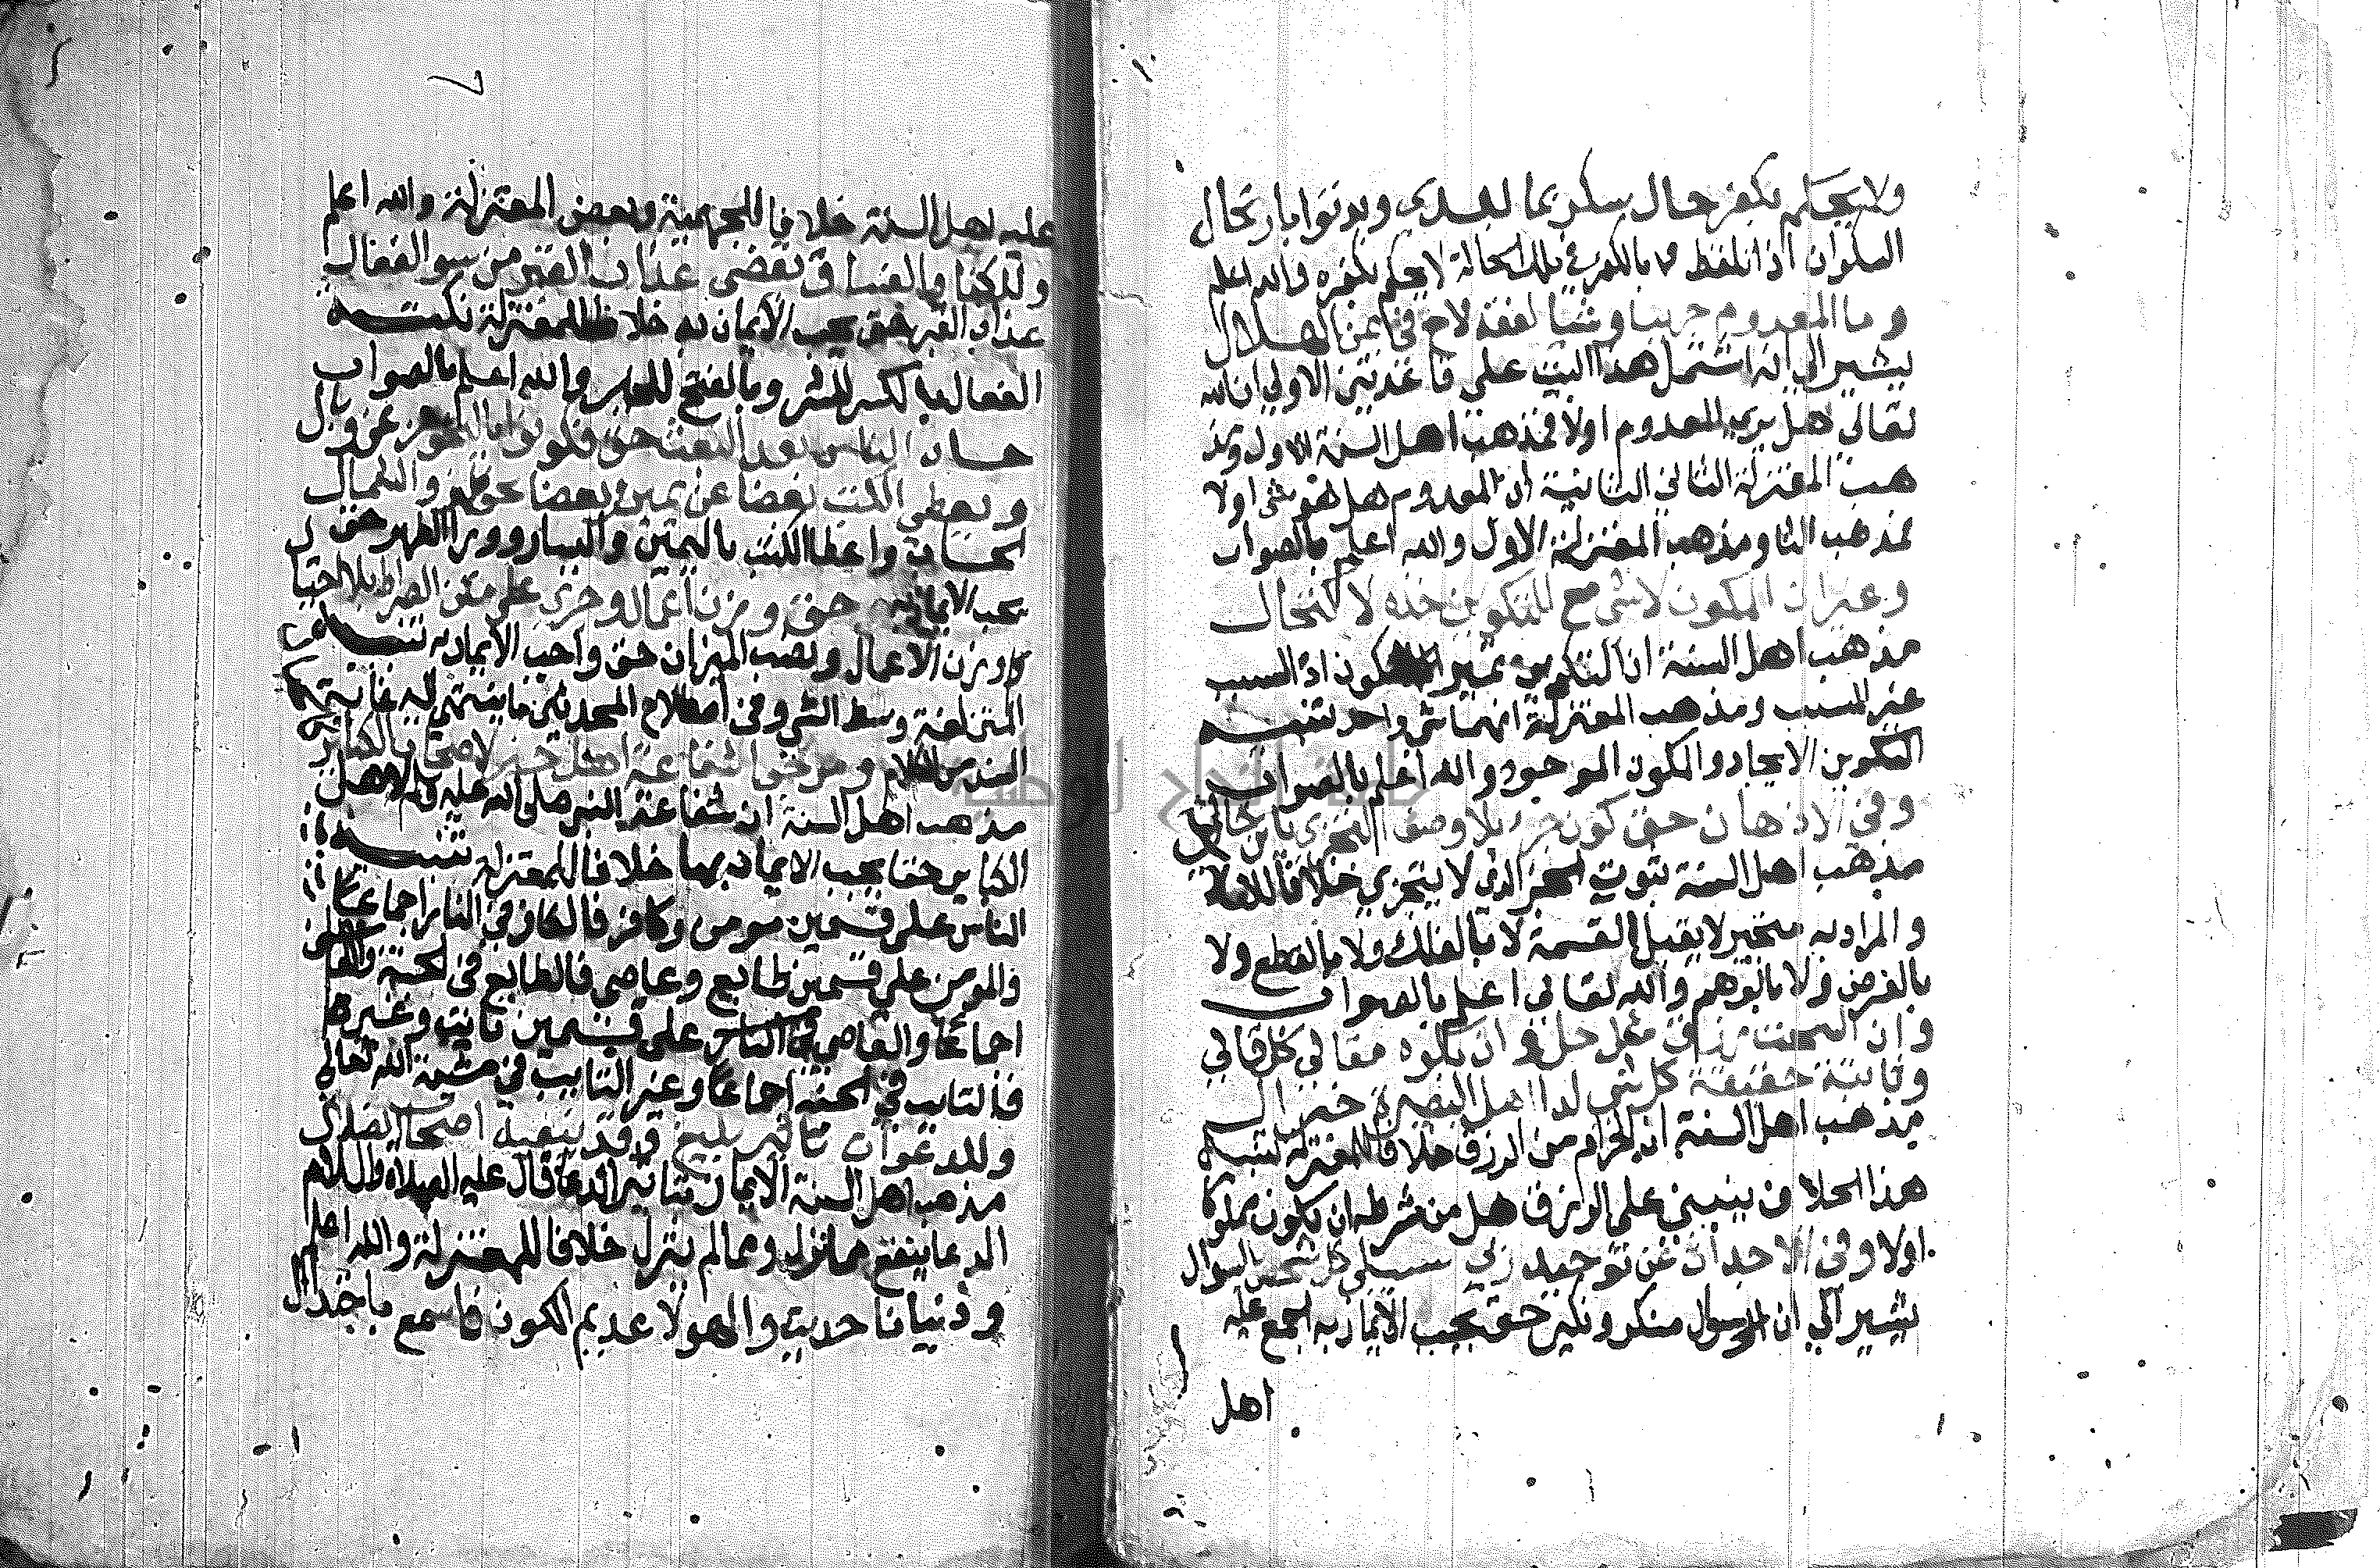 ولا يحكم بكفر حال سكر بما يهذي ويلغوا بارتحال
السكران اذا تلفظ بالكفر في تلك الحالة لا يحكم بكفره والله اعلم
وما المعدوم مرييا وشيا لفقه لاح في يمن الهلال
يشير الي انه اشتمل هذا البيت علي قاعدتين الاولي ان الله
تعالي هل يري المعدوم اولا فمذهب اهل السنة الاول ومذ
هب المعتزلة الثاني الثانية ان المعدوم هل هو شي اولا
فمذهب الثا ومذهب المعتزلة الاول والله اعلم بالصواب
وغيران المكون لا شي مع التكوين خذه لاكتحال
مذهب اهل السنة ان التكوين غير المكون اذ السبب
غير المسبب ومذهب المعتزلة انهما شي واحد تنبيه
التكوين الايجاد والمكون الموجود والله اعلم بالصواب
وفي الاذهان حق كون جزء بلا وصف التجزي يا ابن خالي
مذهب اهل السنة ثبوت الجز الذي لا يتجزي خلافا للفلاسفة
والمراد به متحيز لا يقبل القسمة لا بالفلك ولا بالقطع ولا
بالفرض ولا بالوهم والله تعالي اعلم بالصواب
وان السحت رزق مثل حل وان يكره مقالي كل قالي
وثابتة حقيقة كل شي لدا اهل البصيرة خير ال
مذهب اهل السنة ان الحرام من الرزق خلافا للمعتزلة تنبيه
هذا الخلاف ينبني علي الرزق هل من شرطه ان يكون مملوكا
اولا وفي الاجداث عن توحيد ربي سيبلي كل شخص بالسوال
يشير الي ان سوال منكر ونكير حق يجب الايمان به اجمع عليه
اهل
٧
عليه اهل السنة خلافا للجهمية وبعض المعتزلة والله اعلم
وللكفار والفساق يقضي عذاب القبر من سو الفعال
عذاب القبر حق يجب الايمان به خلافا للمعتزلة نكتــه
الفعال بالكسر للشر وبالفتح للخير والله اعلم بالصواب
حساب الناس بعد البعث حق فكونوا بالتحرز عن وبال
ويعطي الكتب بعضا عن يمين وبعضا نحو ظهر والشمال
الحساب واعطا الكتب باليمين واليسار وورا الظهر حق
يجب الايمان به حق وزن اعمال وجري علي متن الصراط بلا احتيال
وزن الاعمال ونصب الميزان حق واجب الايمان به تنبيه
المتن لغة وسط الشي وفي اصطلاح المحدثين ما ينتهي اليه غاية
السند من الكلام ومرجو شفاعة اهل خير لاصحاب الكبائر
مذهب اهل السنة ان شفاعة النبي صلي الله عليه وسلم لاهل
الكباير حقا يجب الايمان بها خلافا للمعتزلة تنبيه
الناس علي قسمين مومن وكافر فالكافر في النار اجماعا
والمومن علي قسمين طايع وعاصي فالطايع في الجنة
اجماعا والعاصي علي قسمين تايب وغيره
فالتايب في الجنة اجماعا وغير التايب في مشية الله تعالي
وللدعوات تاثير بليغ وقد ينفيه اصحاب الضلال
مذهب اهل السنة الايمان بتاثير الدعا قال عليه الصلاة والسلام
الدعا ينفع مما نزل ومما لم ينزل خلافا للمعتزلة والله اعلم
ودنيانا حديث والهيولا عديم الكون فاسمع باجتذال